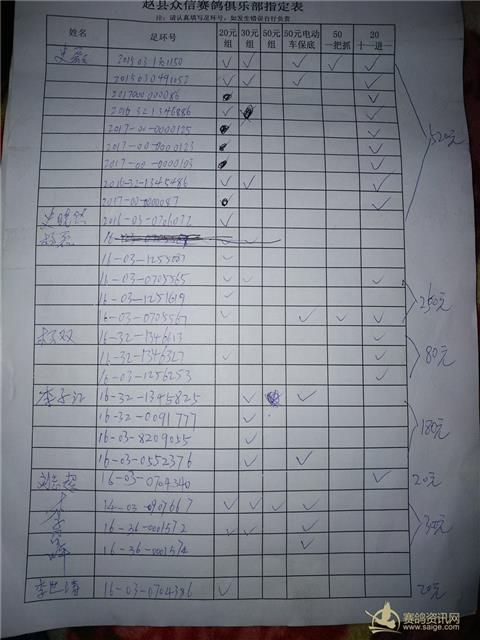 赵县众信赛鸽俱乐部指定表
注：请认真填写足环号，如发生错误自行负责
姓名 足环号 20元组 30元组 50元组 50元电动车保底 50一把抓 20十一进一
2015 03 1301150 ✓ ✓ ✓ ✓ ✓
2015 03 0491052 ✓ ✓ ✓ ✓
2017000000086 ✓
2016 32 1346886 ✓ ✓
2017-00-0000125 ✓
2017-00-0000123 ✓
2017-00-0000103 ✓
2016-32-1345486 ✓ ✓ ✓
2017-00-0000087 ✓
520元
2016-03-0706072 ✓
16-03-1255007 ✓
16-03-0705565 ✓ ✓ ✓
16-03-1251619 ✓
16-03-0705567 ✓ ✓ ✓ ✓
250元
杨双 16-32-1346613 ✓ ✓
16-32-1346327 ✓ ✓
16-03-1256253 ✓
80元
李子江 16-32-1345825 ✓ ✓
16-32-0091777 ✓
16-03-8209055 ✓
16-03-0552376 ✓ ✓
180元
16-03-0704340 ✓
20元
14-03-0907667 ✓ ✓ ✓ ✓
16-36-0001572 ✓ ✓ ✓
16-36-0001574 ✓
16-03-0704386 ✓
20元
赛鸽资讯网
www.saige.com